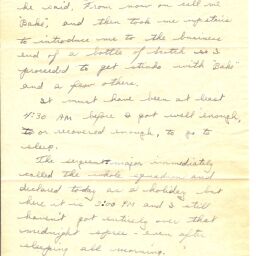 he said. From now on call me
"Bake", and then took me upstairs
to introduce me to the business
end of a bottle of Scotch so I
proceeded to get stinko with "Bake"
and a few others.
It must have been at least
4:30 AM before I got well enough,
to or recovered enough, to go to
sleep.
The sergeant major immediately
called the whole squadron and
declared today as a holiday but
here it is 2:00 PM and I still
haven't got entirely over that
midnight spree - even after
sleeping all morning.